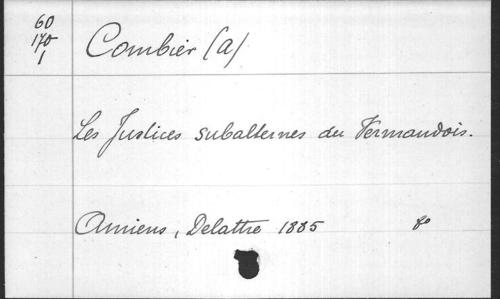 60
170
1
Combier (A)
Les Justices subalternes du Vermandois.
Amiens, Delattre 1885 8º